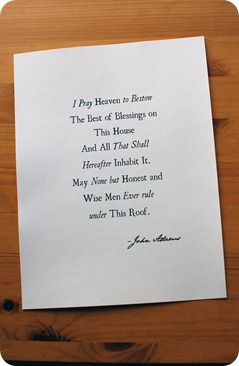 I Pray Heaven to Bestow
The Best of Blessings on
This House
And All That Shall
Hereafter Inhabit It.
May None but Honest and
Wise Men Ever rule
under This Roof.
-John Adams